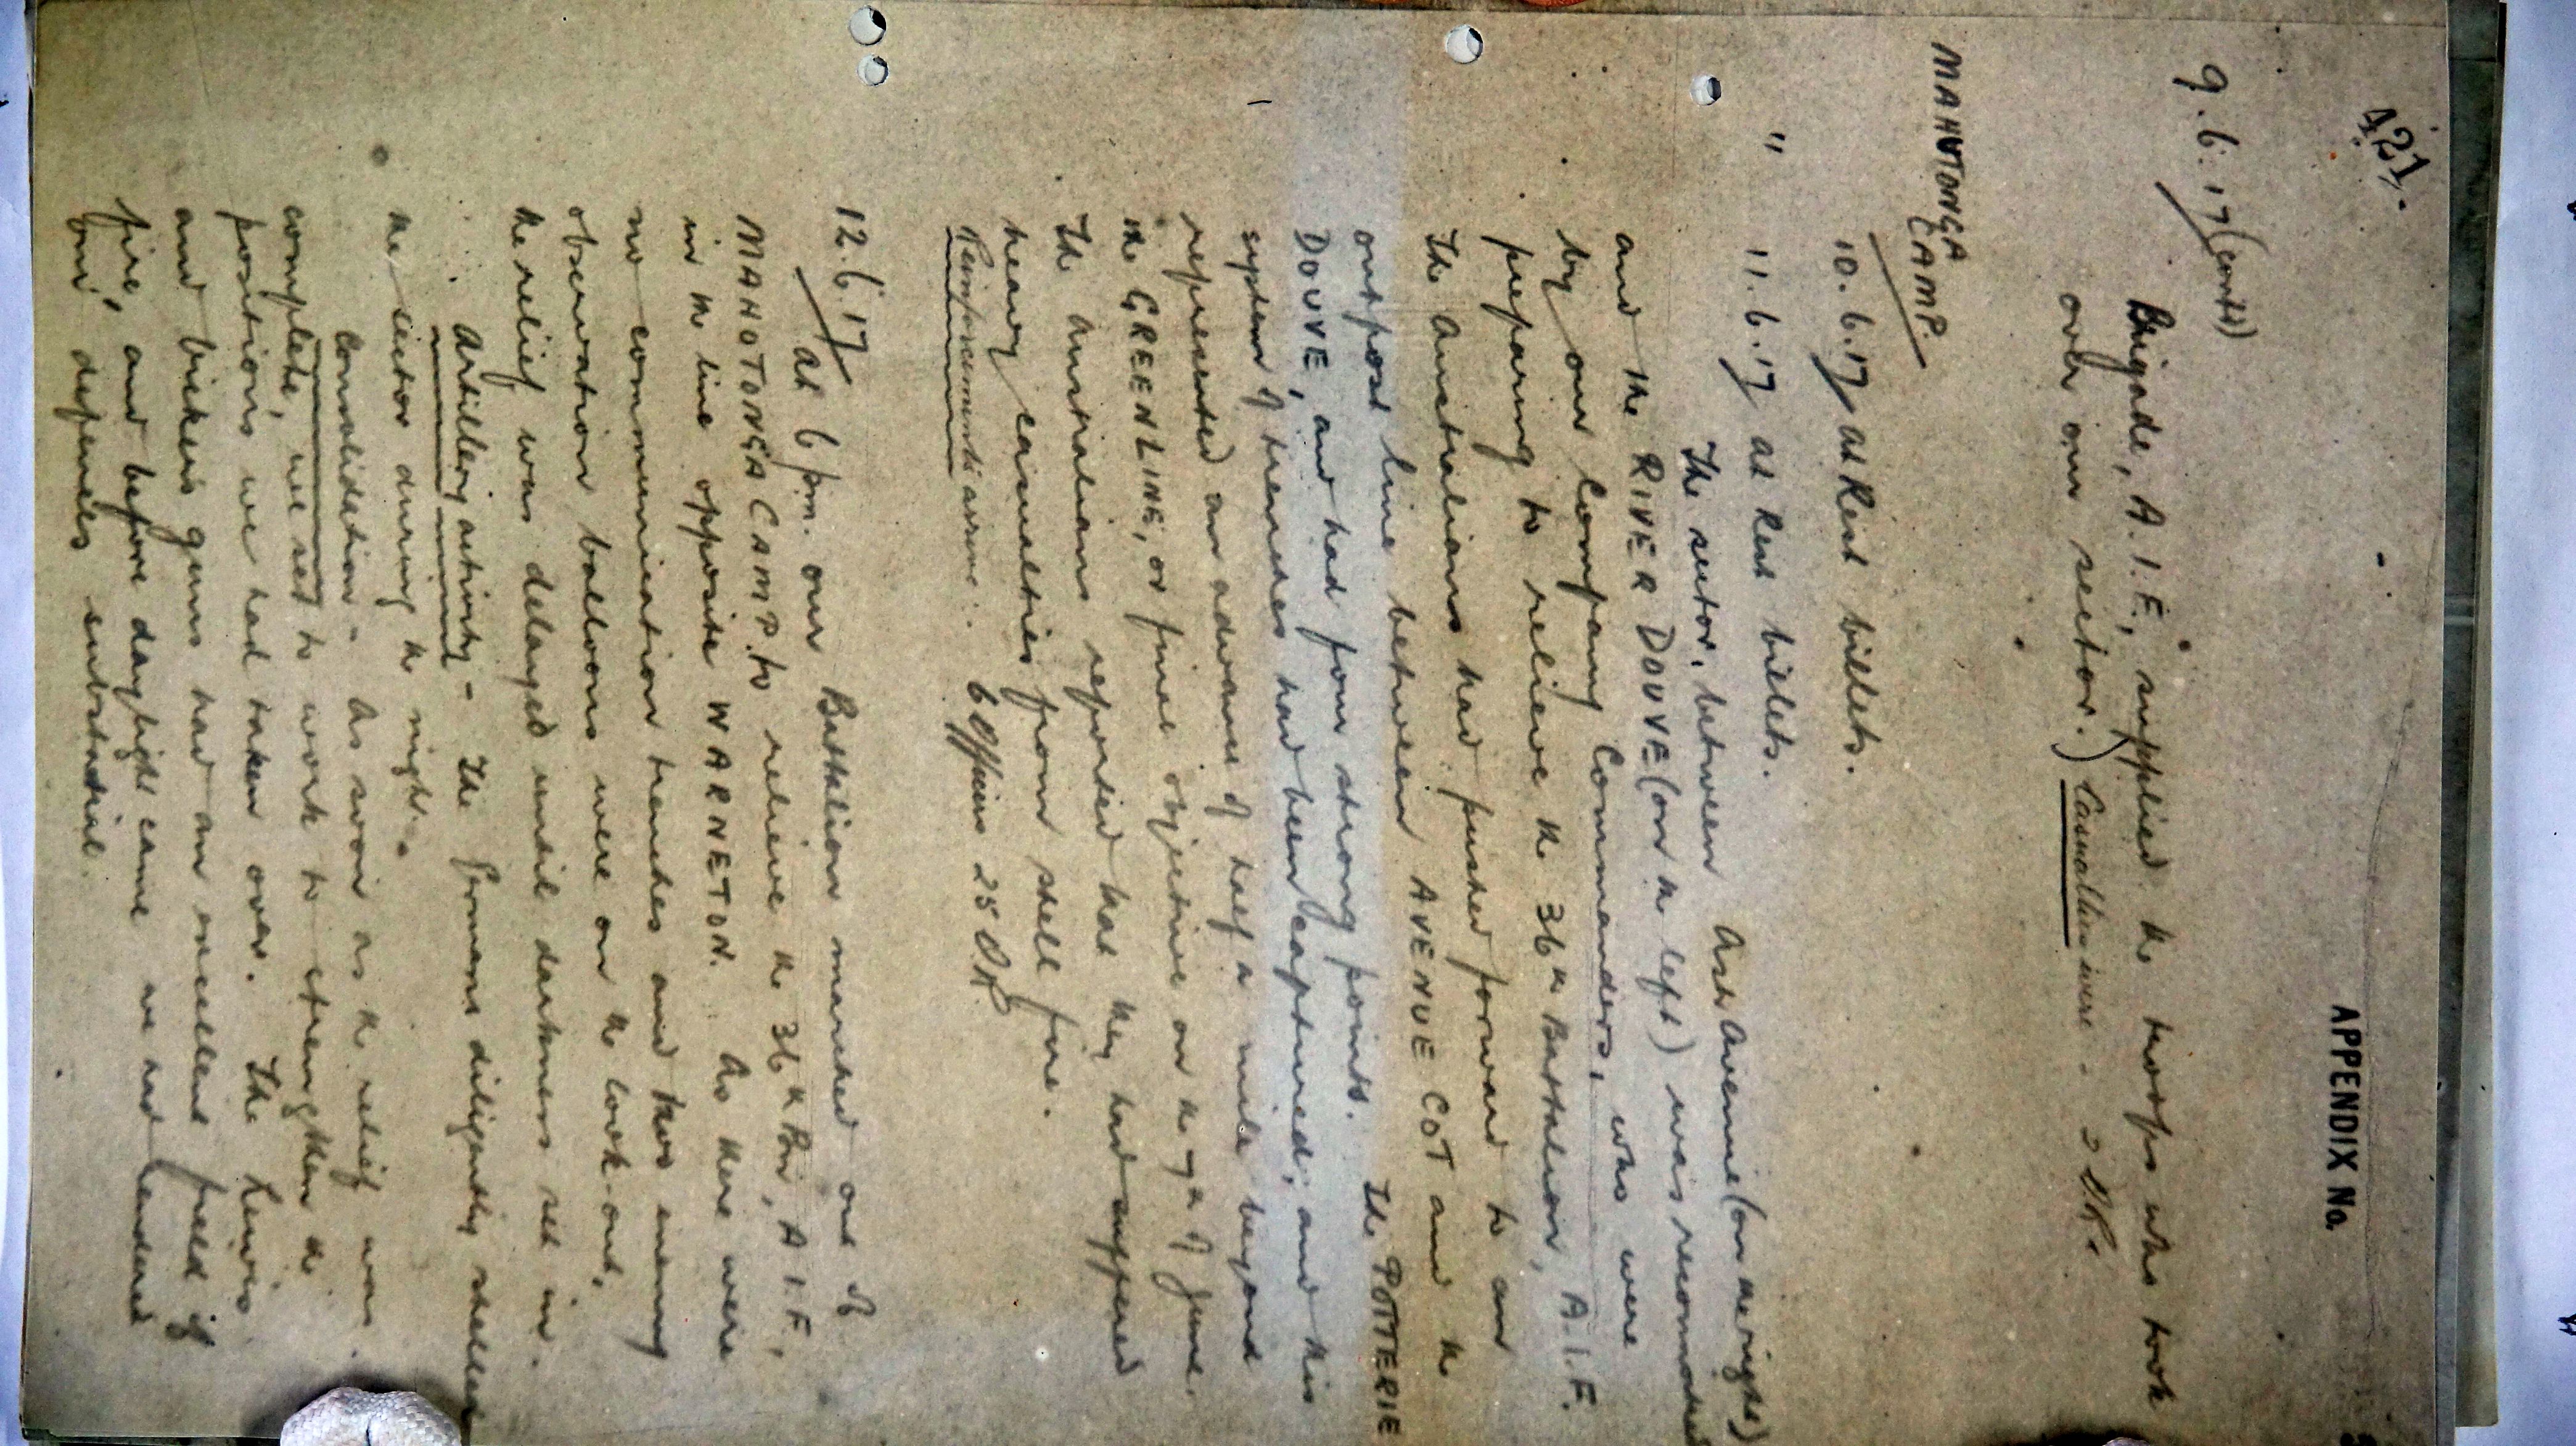 421.
APPENDIX No.
9.6.17 (contd)
Brigade, A.I.F., supplied the troops who took
over our sector.) Casualties were - 2 O.R.
MAHUTONGA
CAMP.
10.6.17 at Rest billets.
" 11.6.17 at Rest billets.
The sector, between Ash Avenue (on the right)
and the RIVER DOUVE (on the left) was reconnoitred
by our Company Commanders, who were
preparing to relieve the 36th Battalion, A.I.F.
The Australians had pushed forward to an
outpost line between AVENUE COT and the
DOUVE, and had four strong points. The POTTERIE
system of trenches had been captured; and this
represented an advance of half a mile beyond
the GREEN LINE, or final objective on the 7th of June.
The Australians reported that they had suffered
heavy casualties from shell fire.
Reinforcements arrive: 6 Officers 25 O.R.
12.6.17 At 6 pm. our Battalion marched out of
MAHOTONGA CAMP. to relieve the 36th Bn, A.I.F.,
in the line opposite WARNETON. As there were
no communication trenches and two enemy
observation balloons were on the look-out,
the relief was delayed until darkness set in.
Artillery activity - The Germans diligently shelled
the sector during the night.
Consolidation - As soon as the relief was
complete, we set to work to strengthen the
positions we had taken over. The Lewis
and Vickers guns had an excellent field of
fire, and before daylight came we had rendered
our defences substantial.